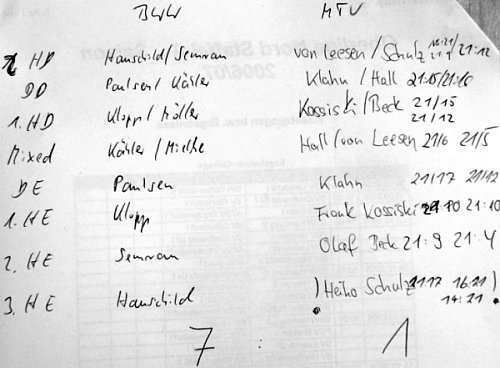 BWW MTV
2. HD Hanschild/Semran von Leesen/Schulz 18:21/21:12 21:9
DD Paulsen/Kähler Klahn/Hall 21:15/21:16
1. HD Klopp/Möller Kossiski/Beck 21/15 21/12
Mixed Kähler/Miethe Hall/von Leesen 21/6 21/5
DE Paulsen Klahn 21/17 21/12
1. HE Klopp Frank Kossiski 21:10 21:10
2. HE Semran Olaf Beck 21:9 21:4
3. HE Hanschild ) Heiko Schulz 21:17 16:21 14:21 )
7 : 1